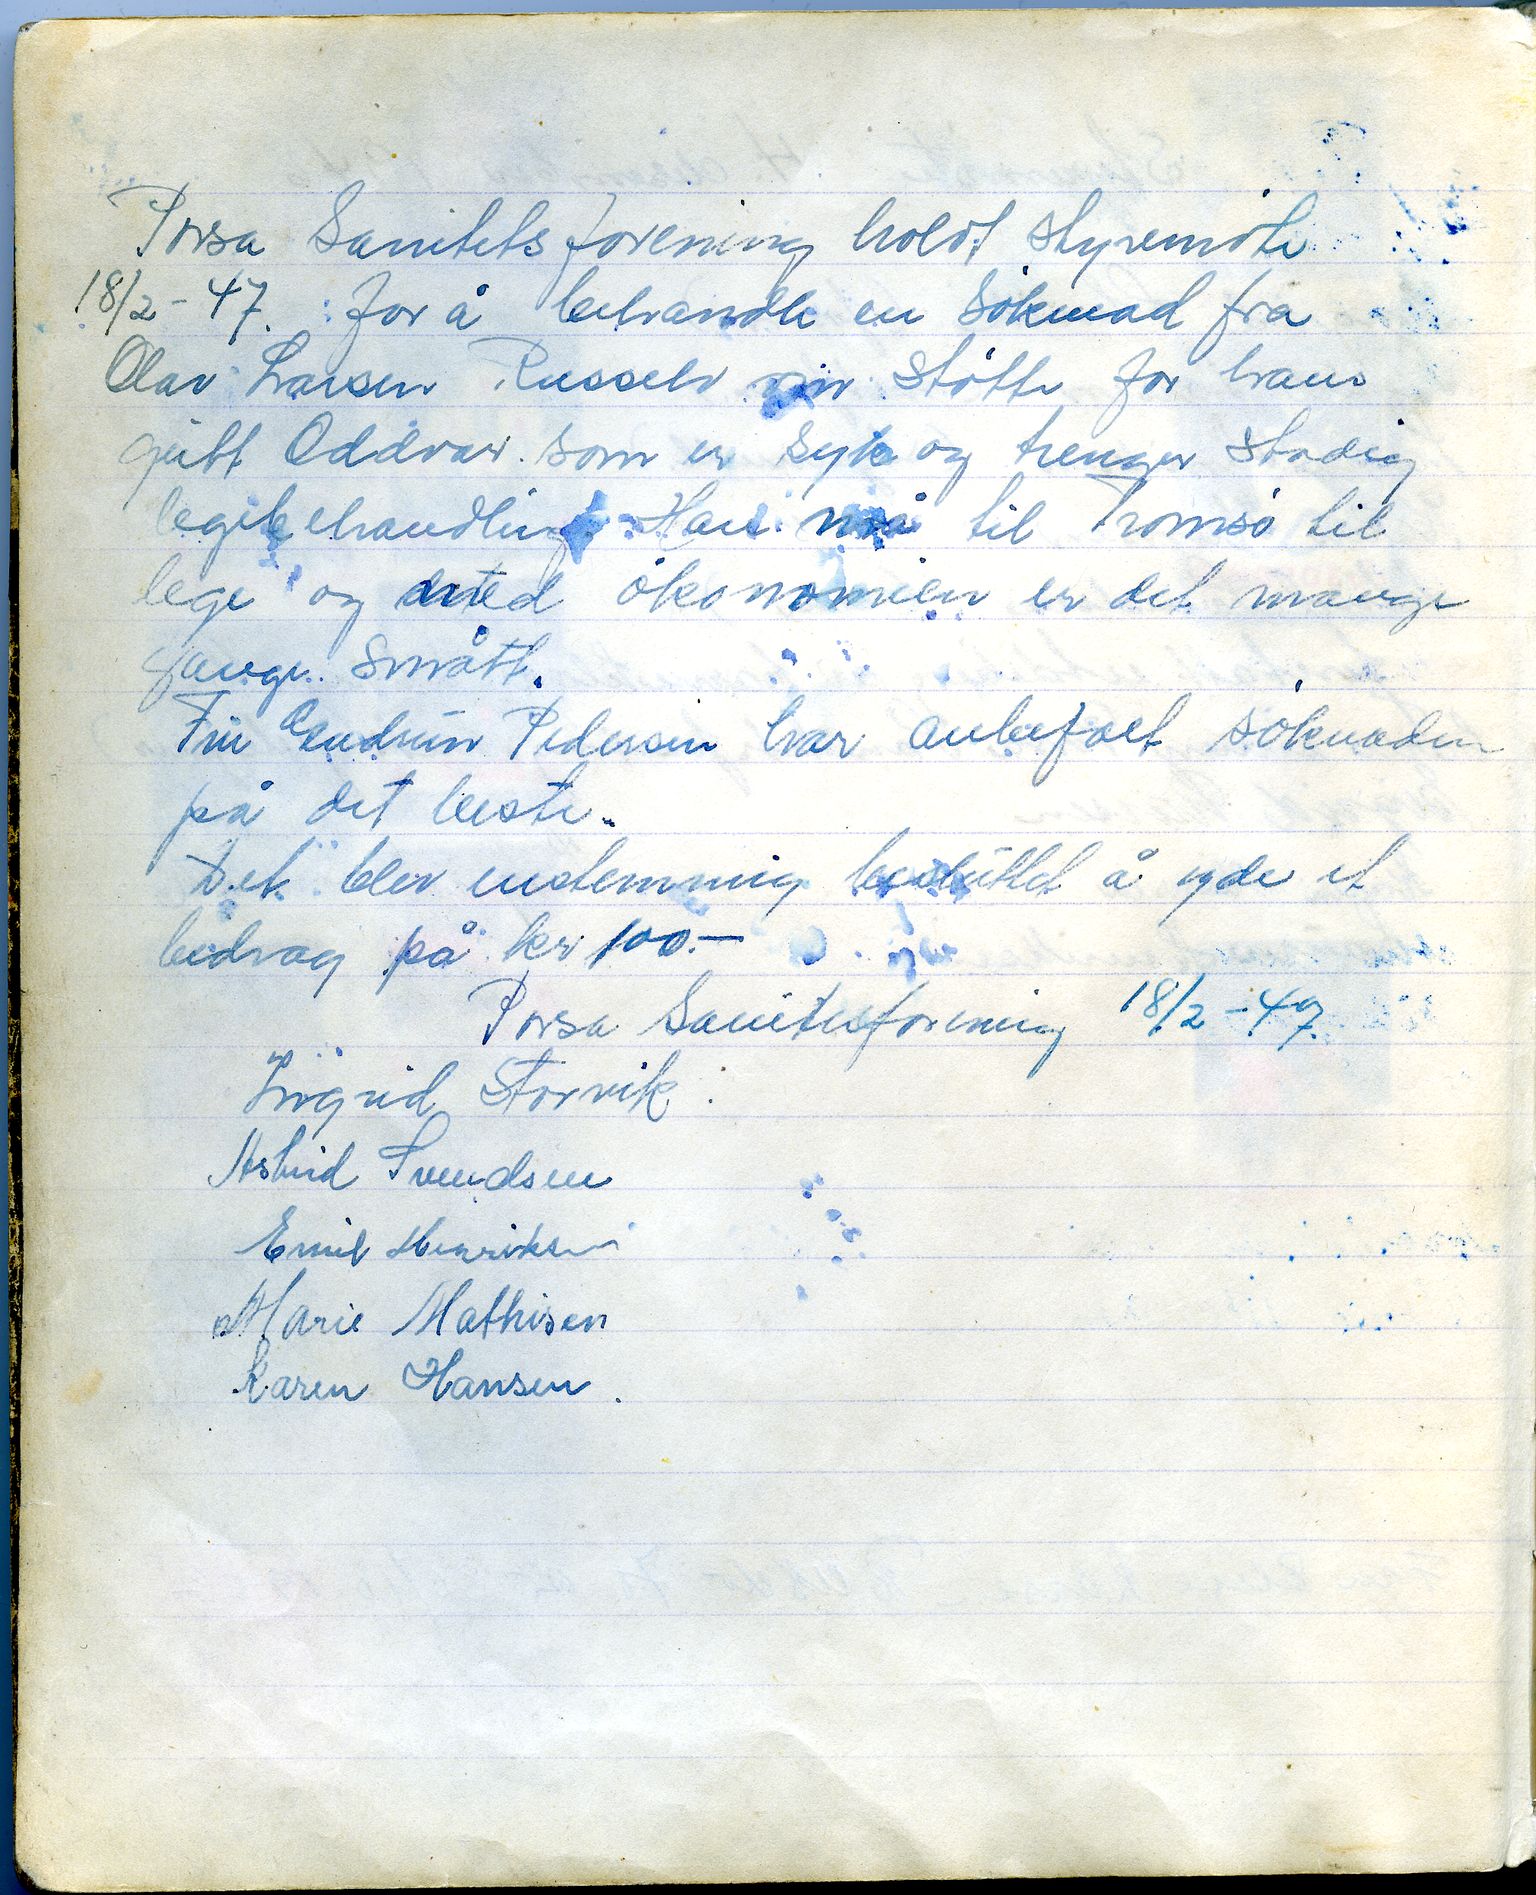 Porsa Sanitetsforening holdt styremöte
18/2 - 47. for å behandle en söknad fra
Olav Larsen Russelv om stötte for hans
gutt Oddvar som er syk og trenger stadig
legebehandling. Han må til Tromsö til
lege og med ökonomien er det mange
gange smått.
Fru Gudrun Pedersen har anbefalt söknaden
på det beste.
Det blev enstemmig besluttet å yde et
bedrag på kr 100.—
Porsa Sanitetsforening 18/2 - 47.
Ingrid Storvik.
Astrid Svendsen
Emil Henriksen
Marie Mathisen
Karen Hansen.